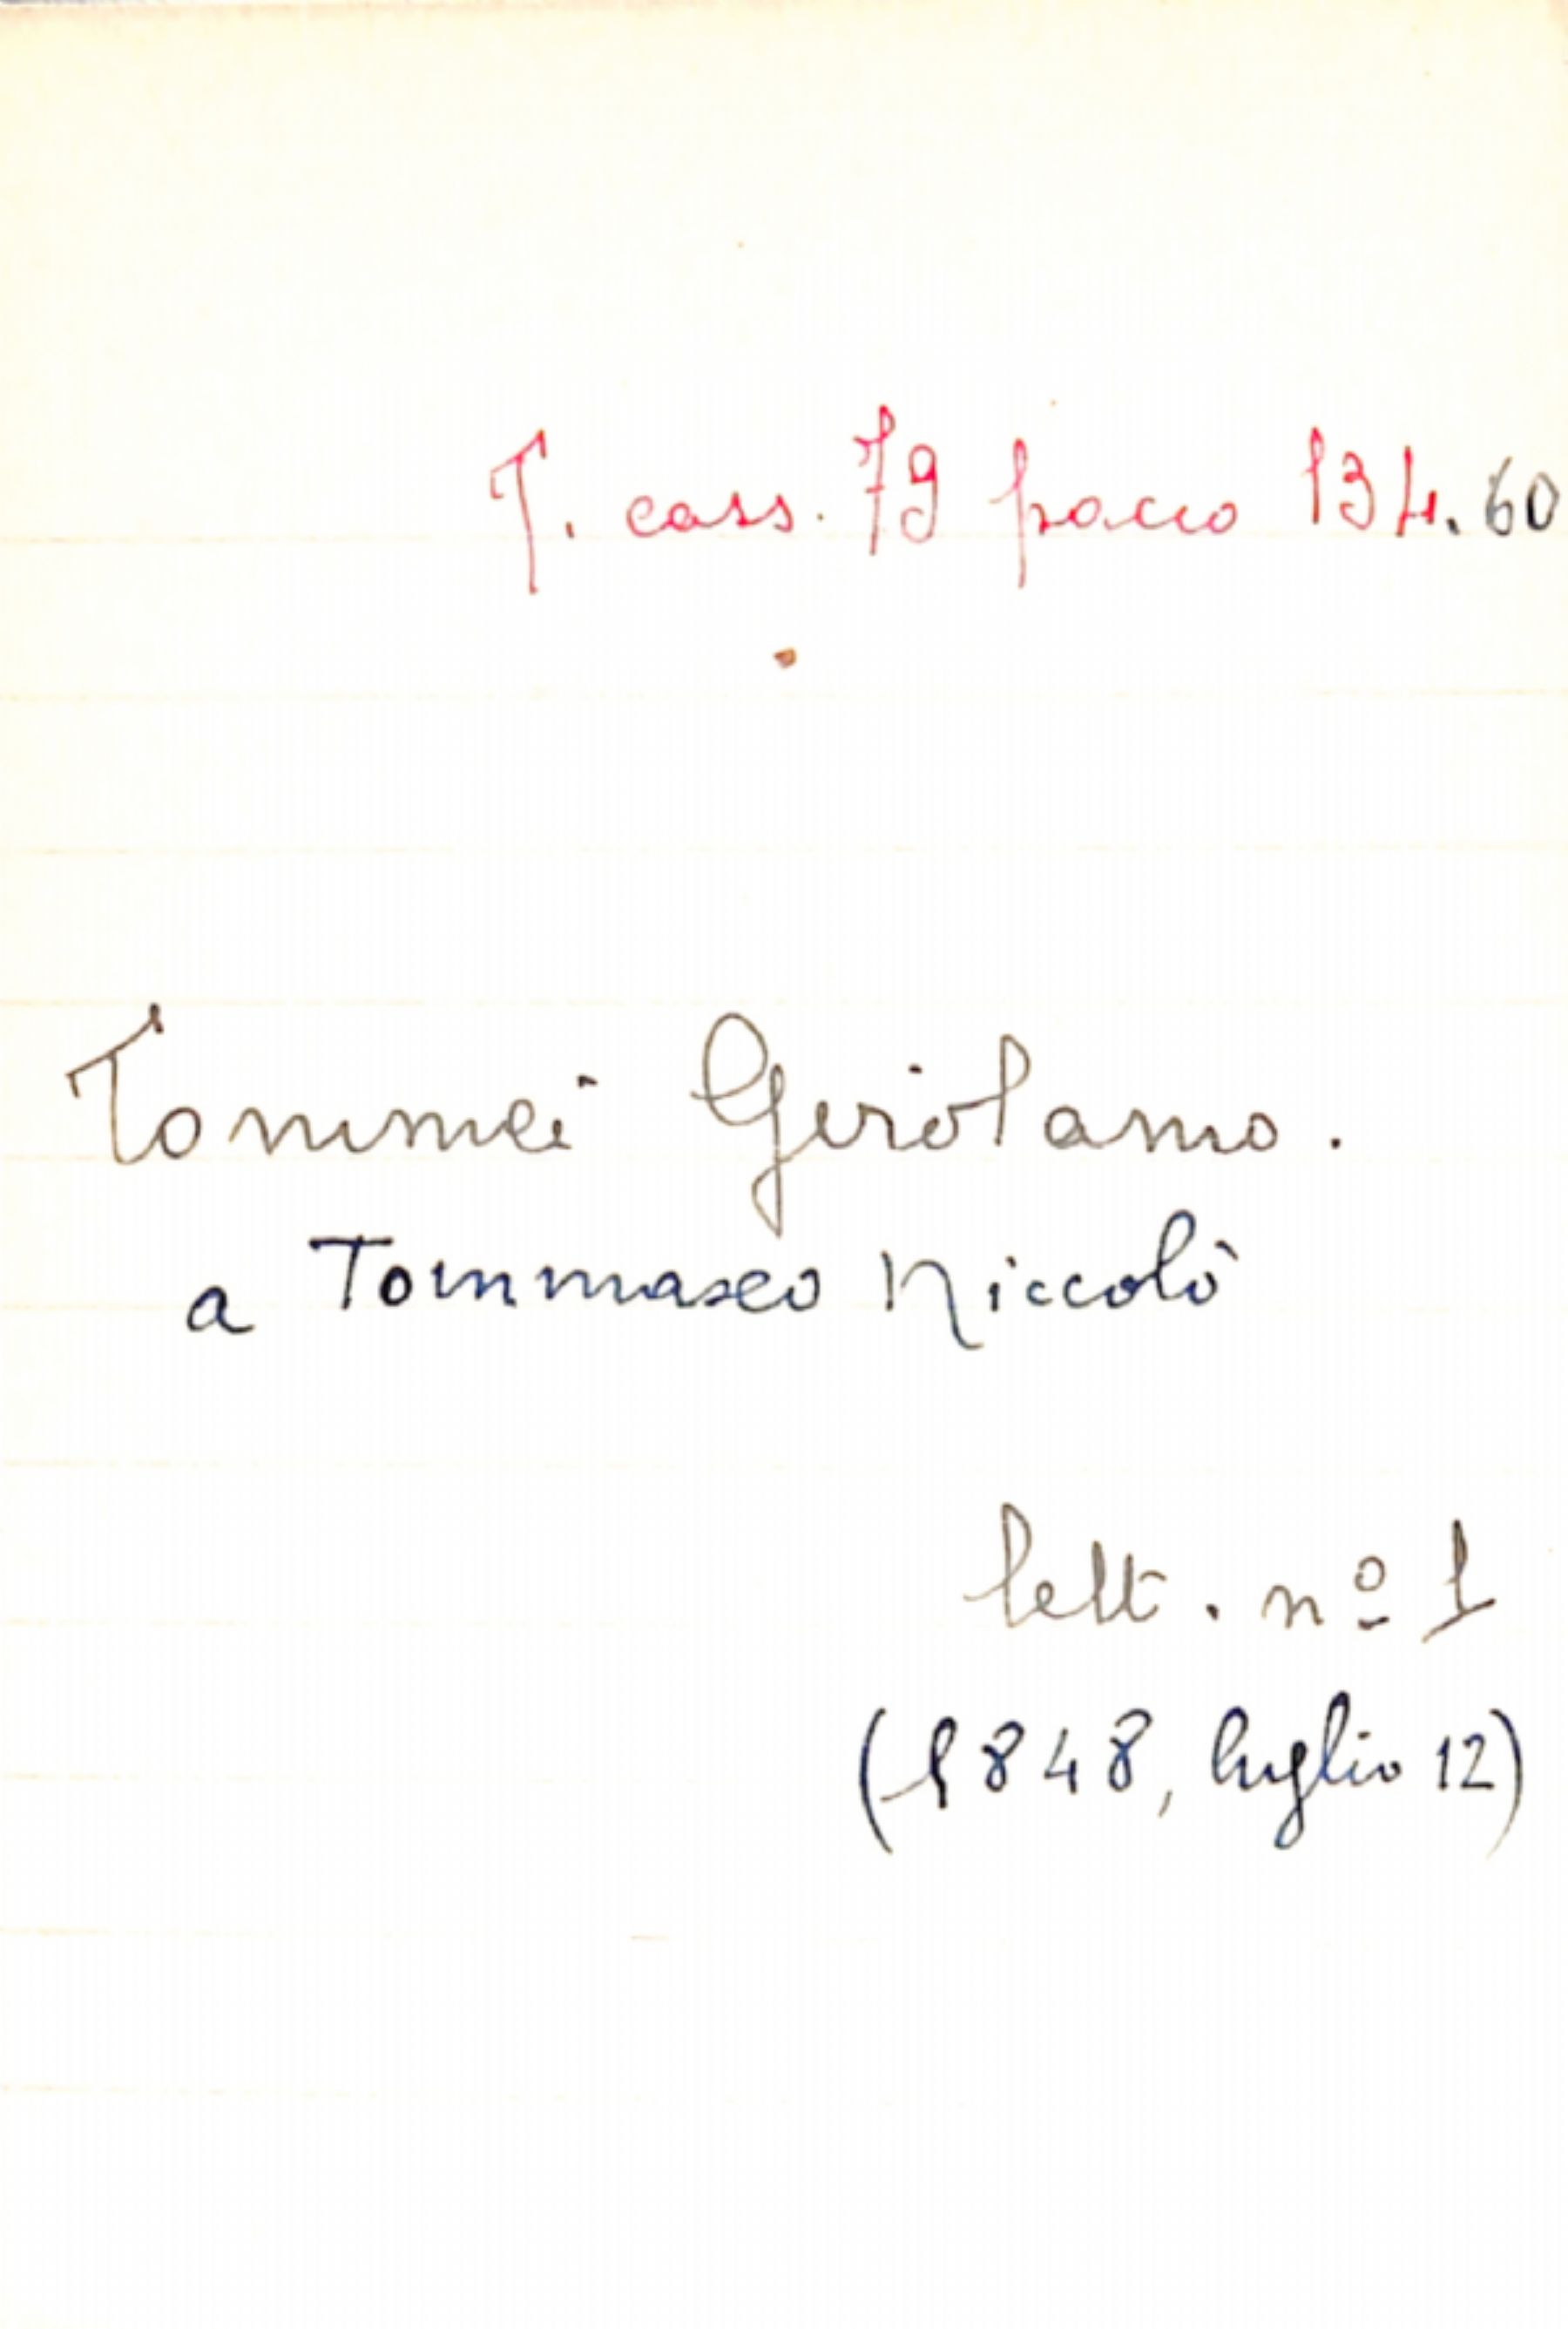 T. cass. 79 pacco 134.60
Tommei Girolamo.
a Tommaseo Niccolò
lett. nº 1
(1848, luglio 12)